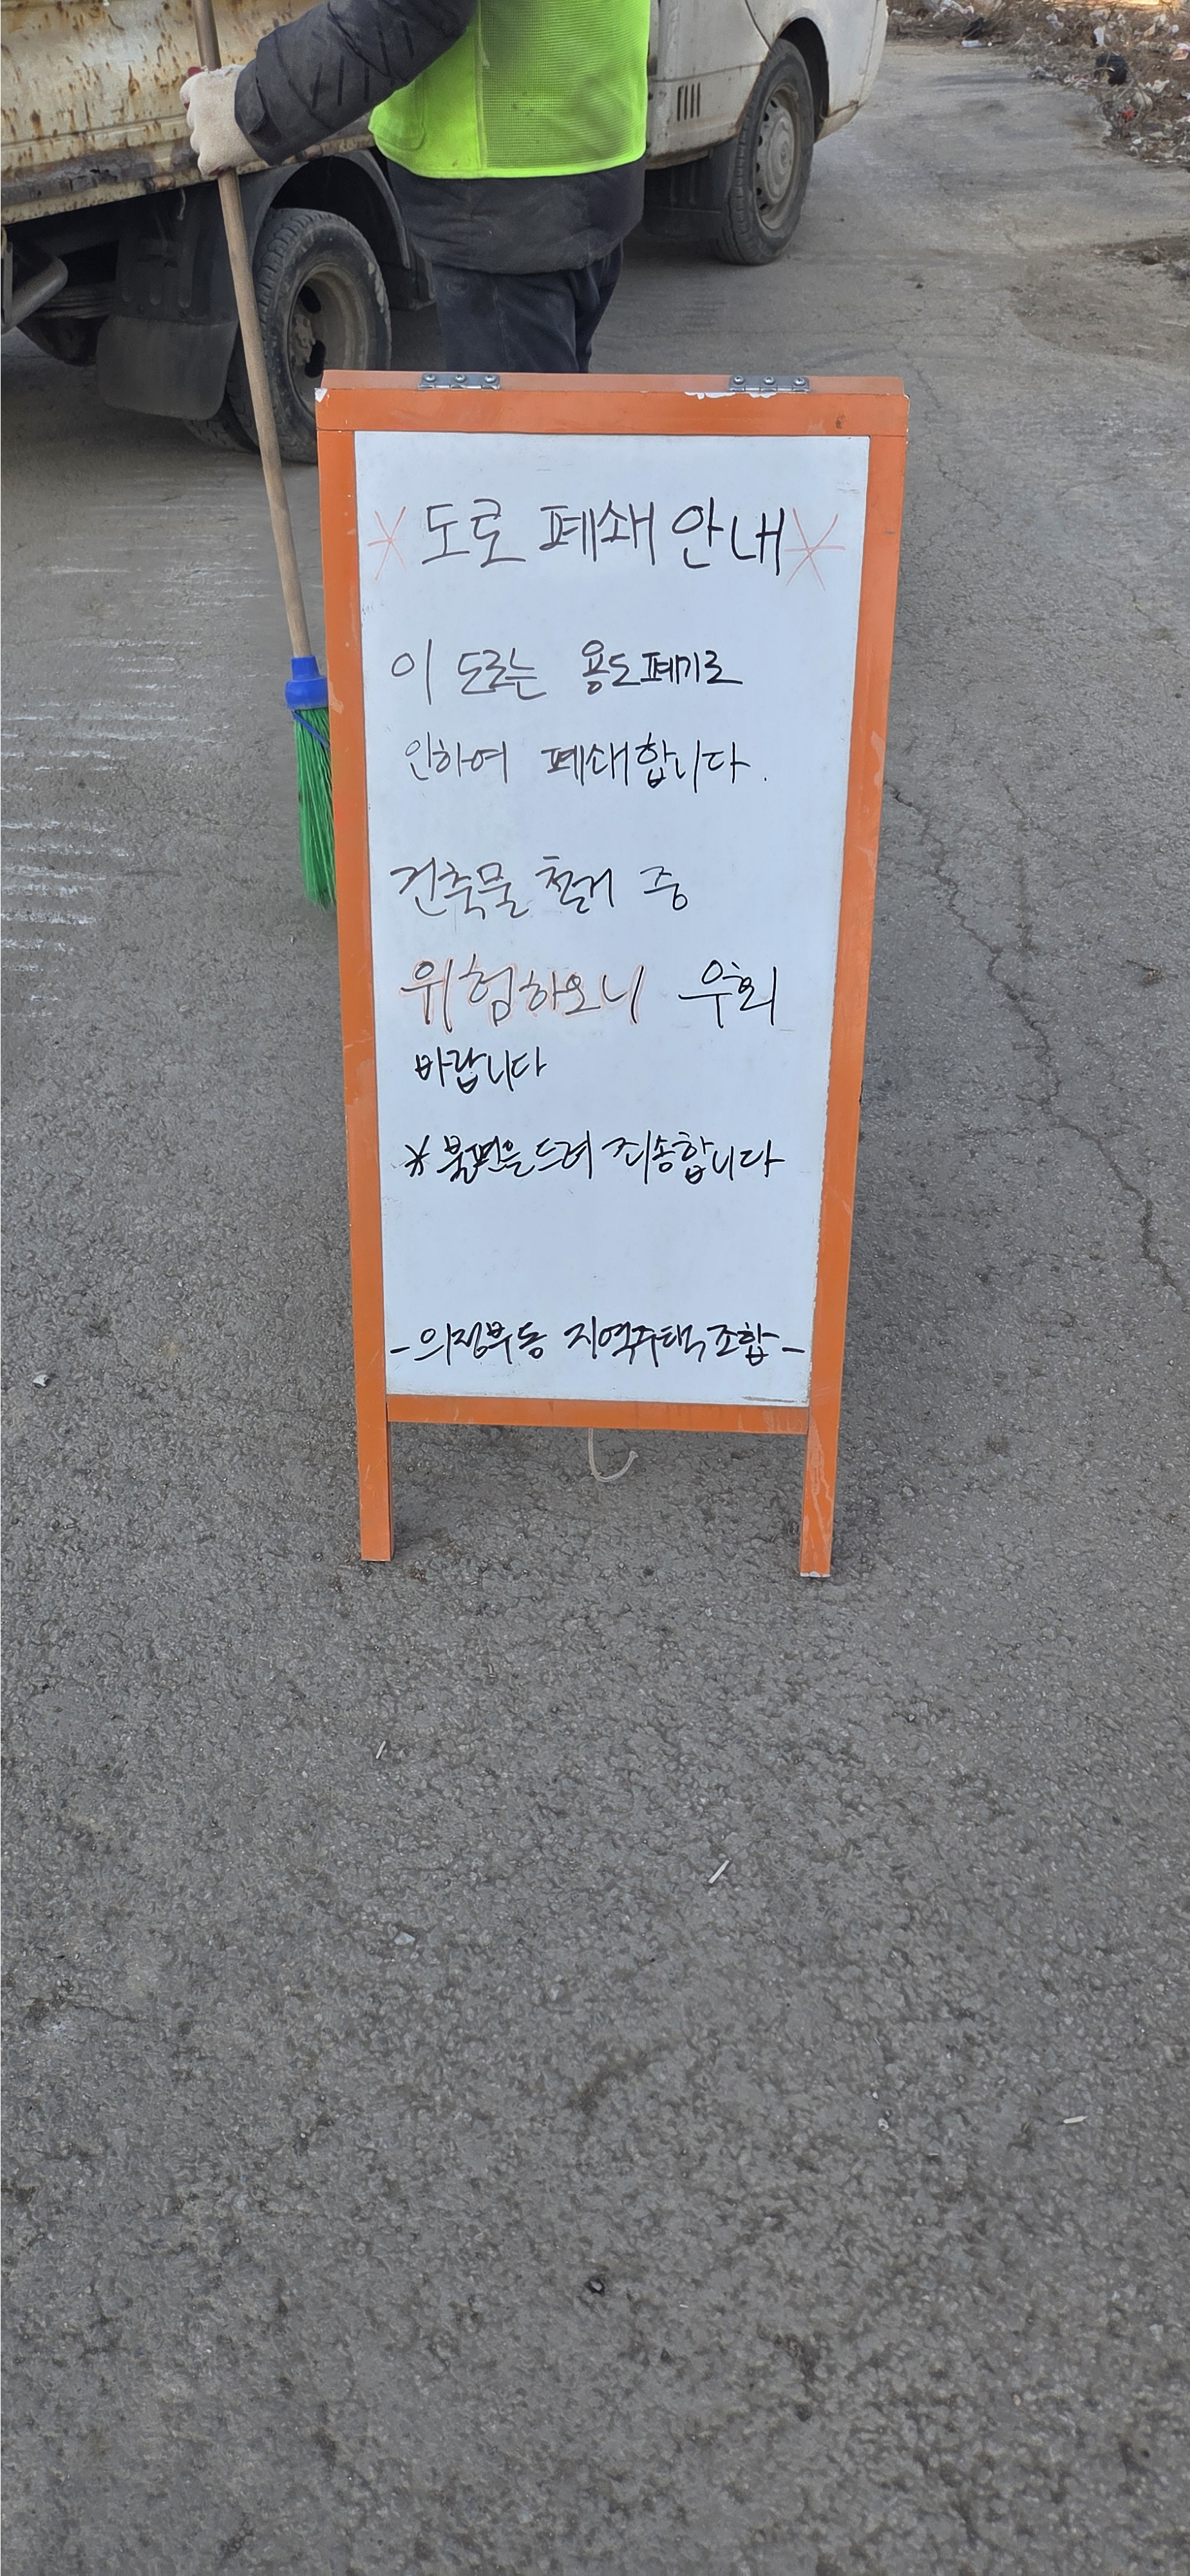 * 도로 폐쇄 안내 *
이 도로는 용도폐기로
인하여 폐쇄합니다.
건축물 철거 중
위험하오니 우회
바랍니다
* 불편을 드려 죄송합니다
- 의정부동 지역주택조합 -